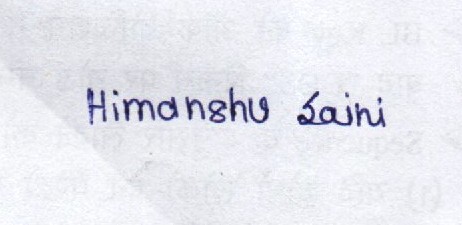 Himanshu Saini